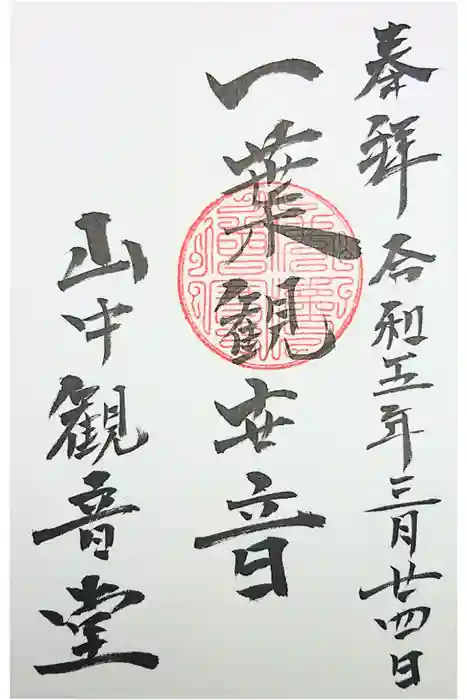 奉拝 令和五年三月廿四日
一葉観世音
山中観音堂